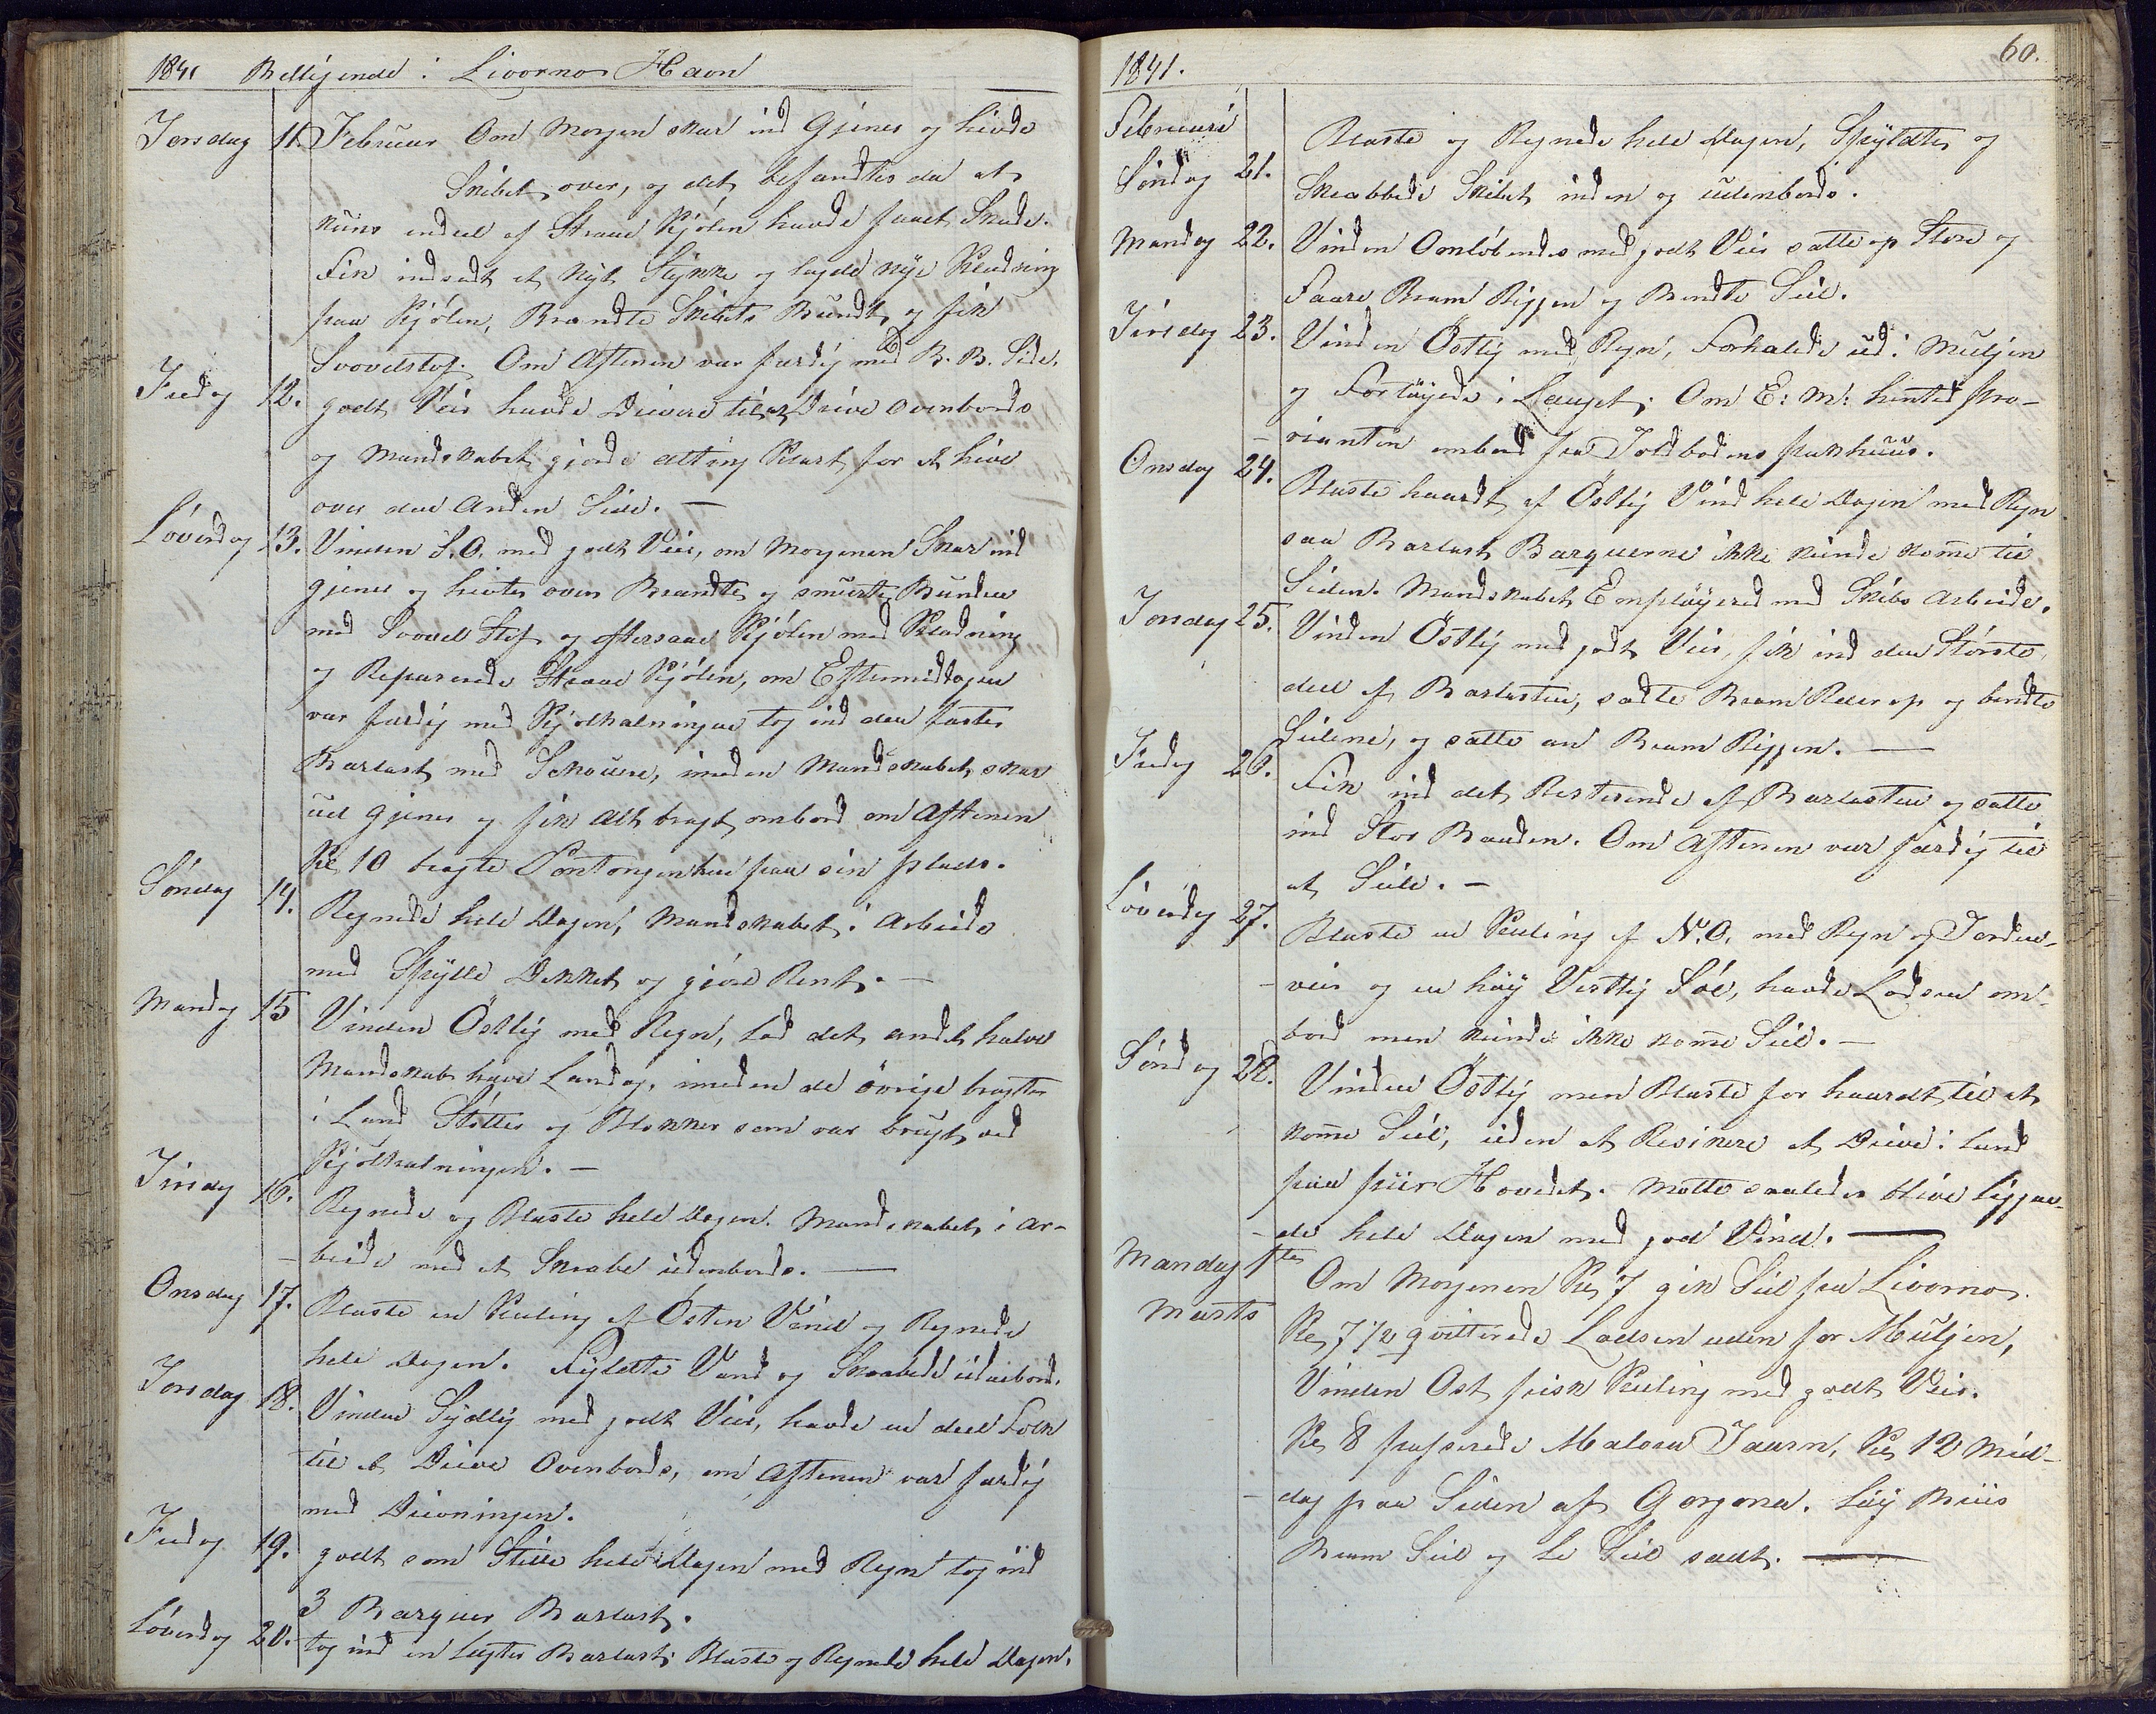 1841 Belligende i Livorno Havn
Torsdag 11. Februar Om Morgen skar ind Gjiner og hivde
Skibet over, og det befandtes da at
kuns endeel af Straae Kjølen havde faaet Skade.
Fik indsadt et nyt Stykke og lagde nye Klædning
paa Kjølen, Brændte Skibets Bundt og fik
Svovelstof. Om Aftenen var færdig med B. B. Side.
Fredag 12. godt Veir havde Drivere til at Drive ovenbords
og Mandskabet gjorde alting Klart for at hive
over den Anden Side. —
Løverdag 13. Vinden S.O. med godt Veir, om Morgenen Skar ind
gjiner og hivtes over Brændte og smurte Bunden
med Svovel Stof og eftersaae Kjølen med Klædning
og Reparerede Straae Kjølen, om Eftermiddagen
var færdig med Kjølhalningen tog ind den første
Barlast med Schouere, imeden Mandskabet skar
ud gjiner og fik alt bragt ombord om Aftenen
Kl 10 bragte Pontongen hen paa sin plads.
Søndag 14. Regnede hele Dagen, Mandskabet i Arbeide
med Skylle Dekket og gjøre Rent. —
Mandag 15 Vinden Østlig med Regn, lod det andet halve
Mandskab have Landlov, imeden de øvrige bragte
i Land Støtter og Blokker som var brugt ved
Kjølhalningen. —
Tirsdag 16. Regnede og Blæste hele Dagen. Mandskabet i Ar-
beide med at Skrabe udenbords. —
Onsdag 17. Blæste en Kuling af Østen Vind og Regnede
hele Dagen. Fyldte Vand og Skrabede udenbord.
Torsdag 18. Vinden Sydlig med godt Veir, havde en deel Folk
til at Drive Ovenbords, om Aftenen var færdig
med Drivningen.
Fredag 19. godt som Stille hele Dagen med Regn tog ind
3 Barquer Barlast.
Løverdag 20. tog ind en Legter Barlast, Blæste og Regnede hele Dagen.
1841. 60.
Februari
Søndag 21. Blæste og Regnede hele Dagen, Skyldte og
Skrabbede Skibet inden og udenbords.
Mandag 22. Vinden Omløbende med godt Veir satte op Store og
Faare Bram Riggen og Bendte Seil.
Tirsdag 23. Vinden Østlig med Regn, Forhalede ud i Muljen
og Fortøyede i Lauget; Om E: M: hentede Pro-
vianten ombord fra Toldbodens pakhuus.
Onsdag 24. Blæste haardt af Østlig Vind hele Dagen med Regn
saa Barlast Barquerne ikke kunde komme til
Siden. Mandskabet Emploÿered med Skibs Arbeide.
Torsdag 25. Vinden Østlig med godt Veir, fik ind den Største
deel af Barlasten, sadte Bram Ræer op og bendte
Seilene, og satte an Bram Riggen. —
Fredag 26. Fik ind det Resterende af Barlasten og satte
ind Stor Baaden. Om Aftenen var færdig til
at Seile. —
Løverdag 27. Blæste en Kuling af N.O. med Regn og Torden-
veir og en høy Vestlig Søe, havde Lodsen om-
bord men kunde ikke komme Seil. —
Søndag 28. Vinden Østlig men Blæste for haardt til at
komme Seil, uden at Resikere at Drive i Land
paa piir Hovedet. Motte saaledes blive liggen-
de hele Dagen med god Vind. —
Mandag 1te Om Morgenen Kl 7 gik Seil fra Livorno.
Marts Kl 7 1/2 qvitterede Lodsen uden for Muljen,
Vinden Ost frisk Kuling med godt Veir.
Kl 8 passerede Malora Taarn, Kl 12 Mid-
dag paa Siden af Gorgona. Løy Briis
Bram Seil og Læ Seil sadt. —